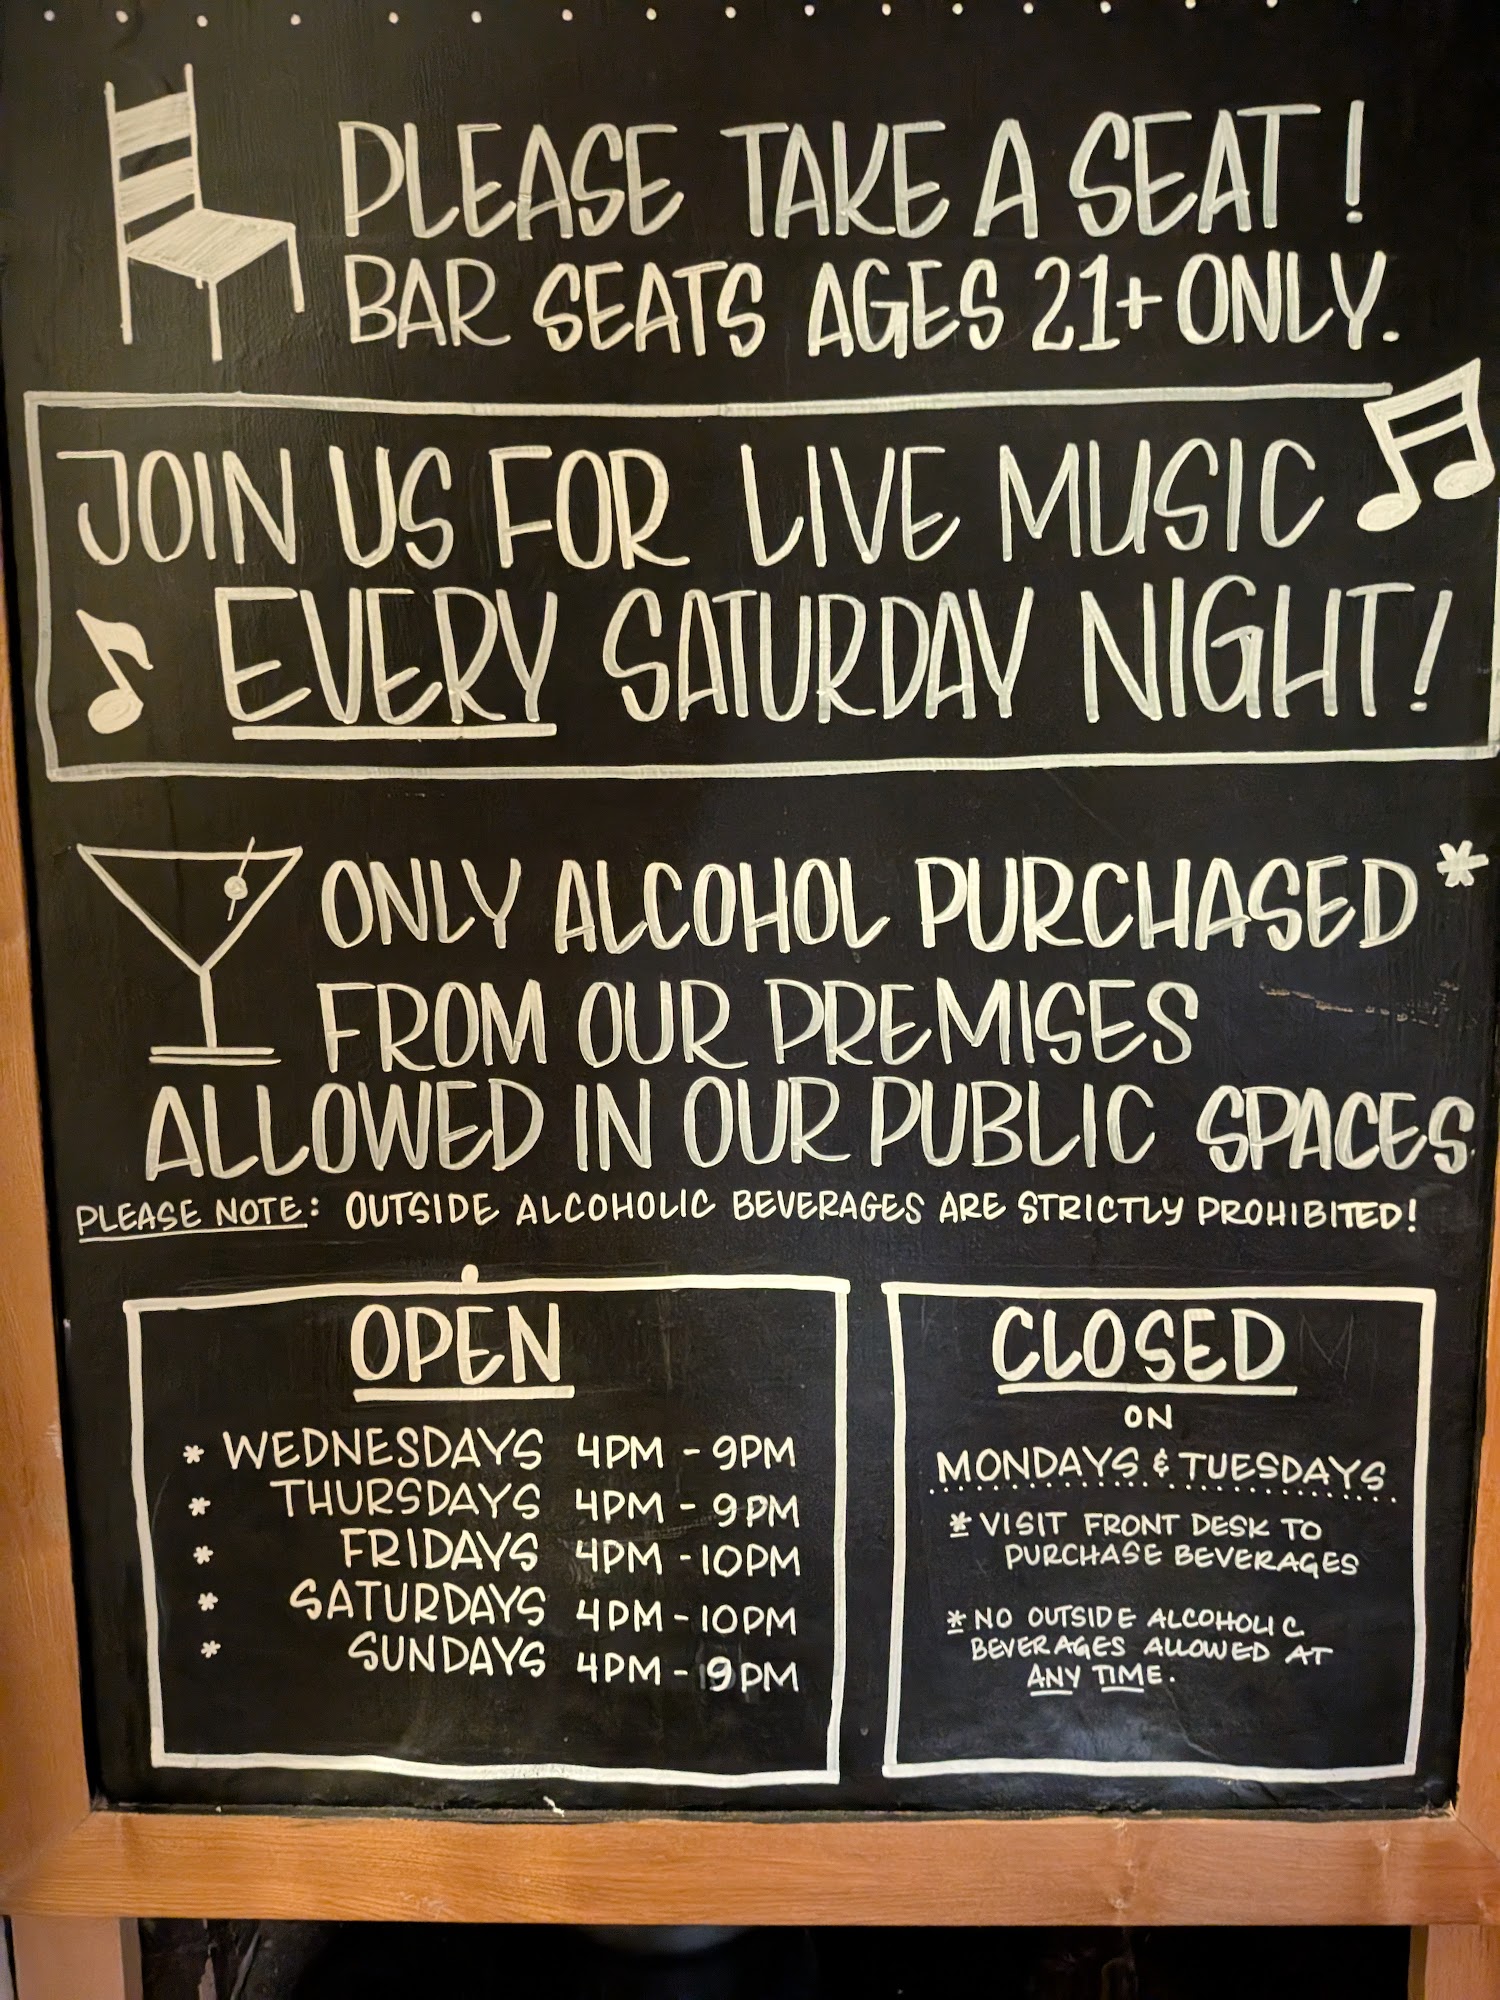 PLEASE TAKE A SEAT!
BAR SEATS AGES 21+ ONLY.
JOIN US FOR LIVE MUSIC
EVERY SATURDAY NIGHT!
ONLY ALCOHOL PURCHASED*
FROM OUR PREMISES
ALLOWED IN OUR PUBLIC SPACES.
PLEASE NOTE: OUTSIDE ALCOHOLIC BEVERAGES ARE STRICTLY PROHIBITED!
OPEN
* WEDNESDAYS 4PM - 9PM
* THURSDAYS 4PM - 9PM
* FRIDAYS 4PM - 10PM
* SATURDAYS 4PM - 10PM
* SUNDAYS 4PM - 9PM
CLOSED
ON
MONDAYS & TUESDAYS
* VISIT FRONT DESK TO
PURCHASE BEVERAGES
* NO OUTSIDE ALCOHOLIC
BEVERAGES ALLOWED AT
ANY TIME.